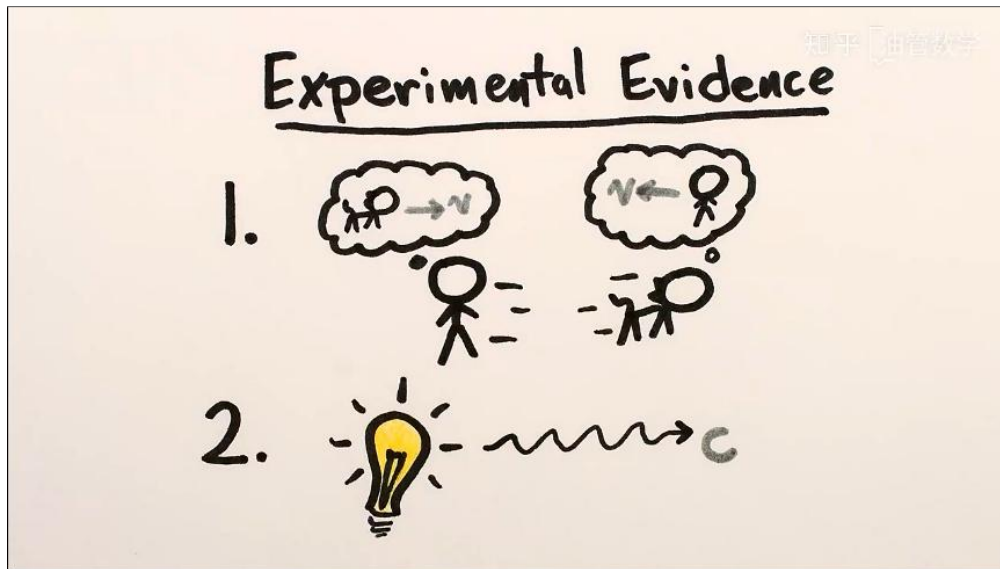 知乎 油管教学
Experimental Evidence
1.
v
v
2.
c